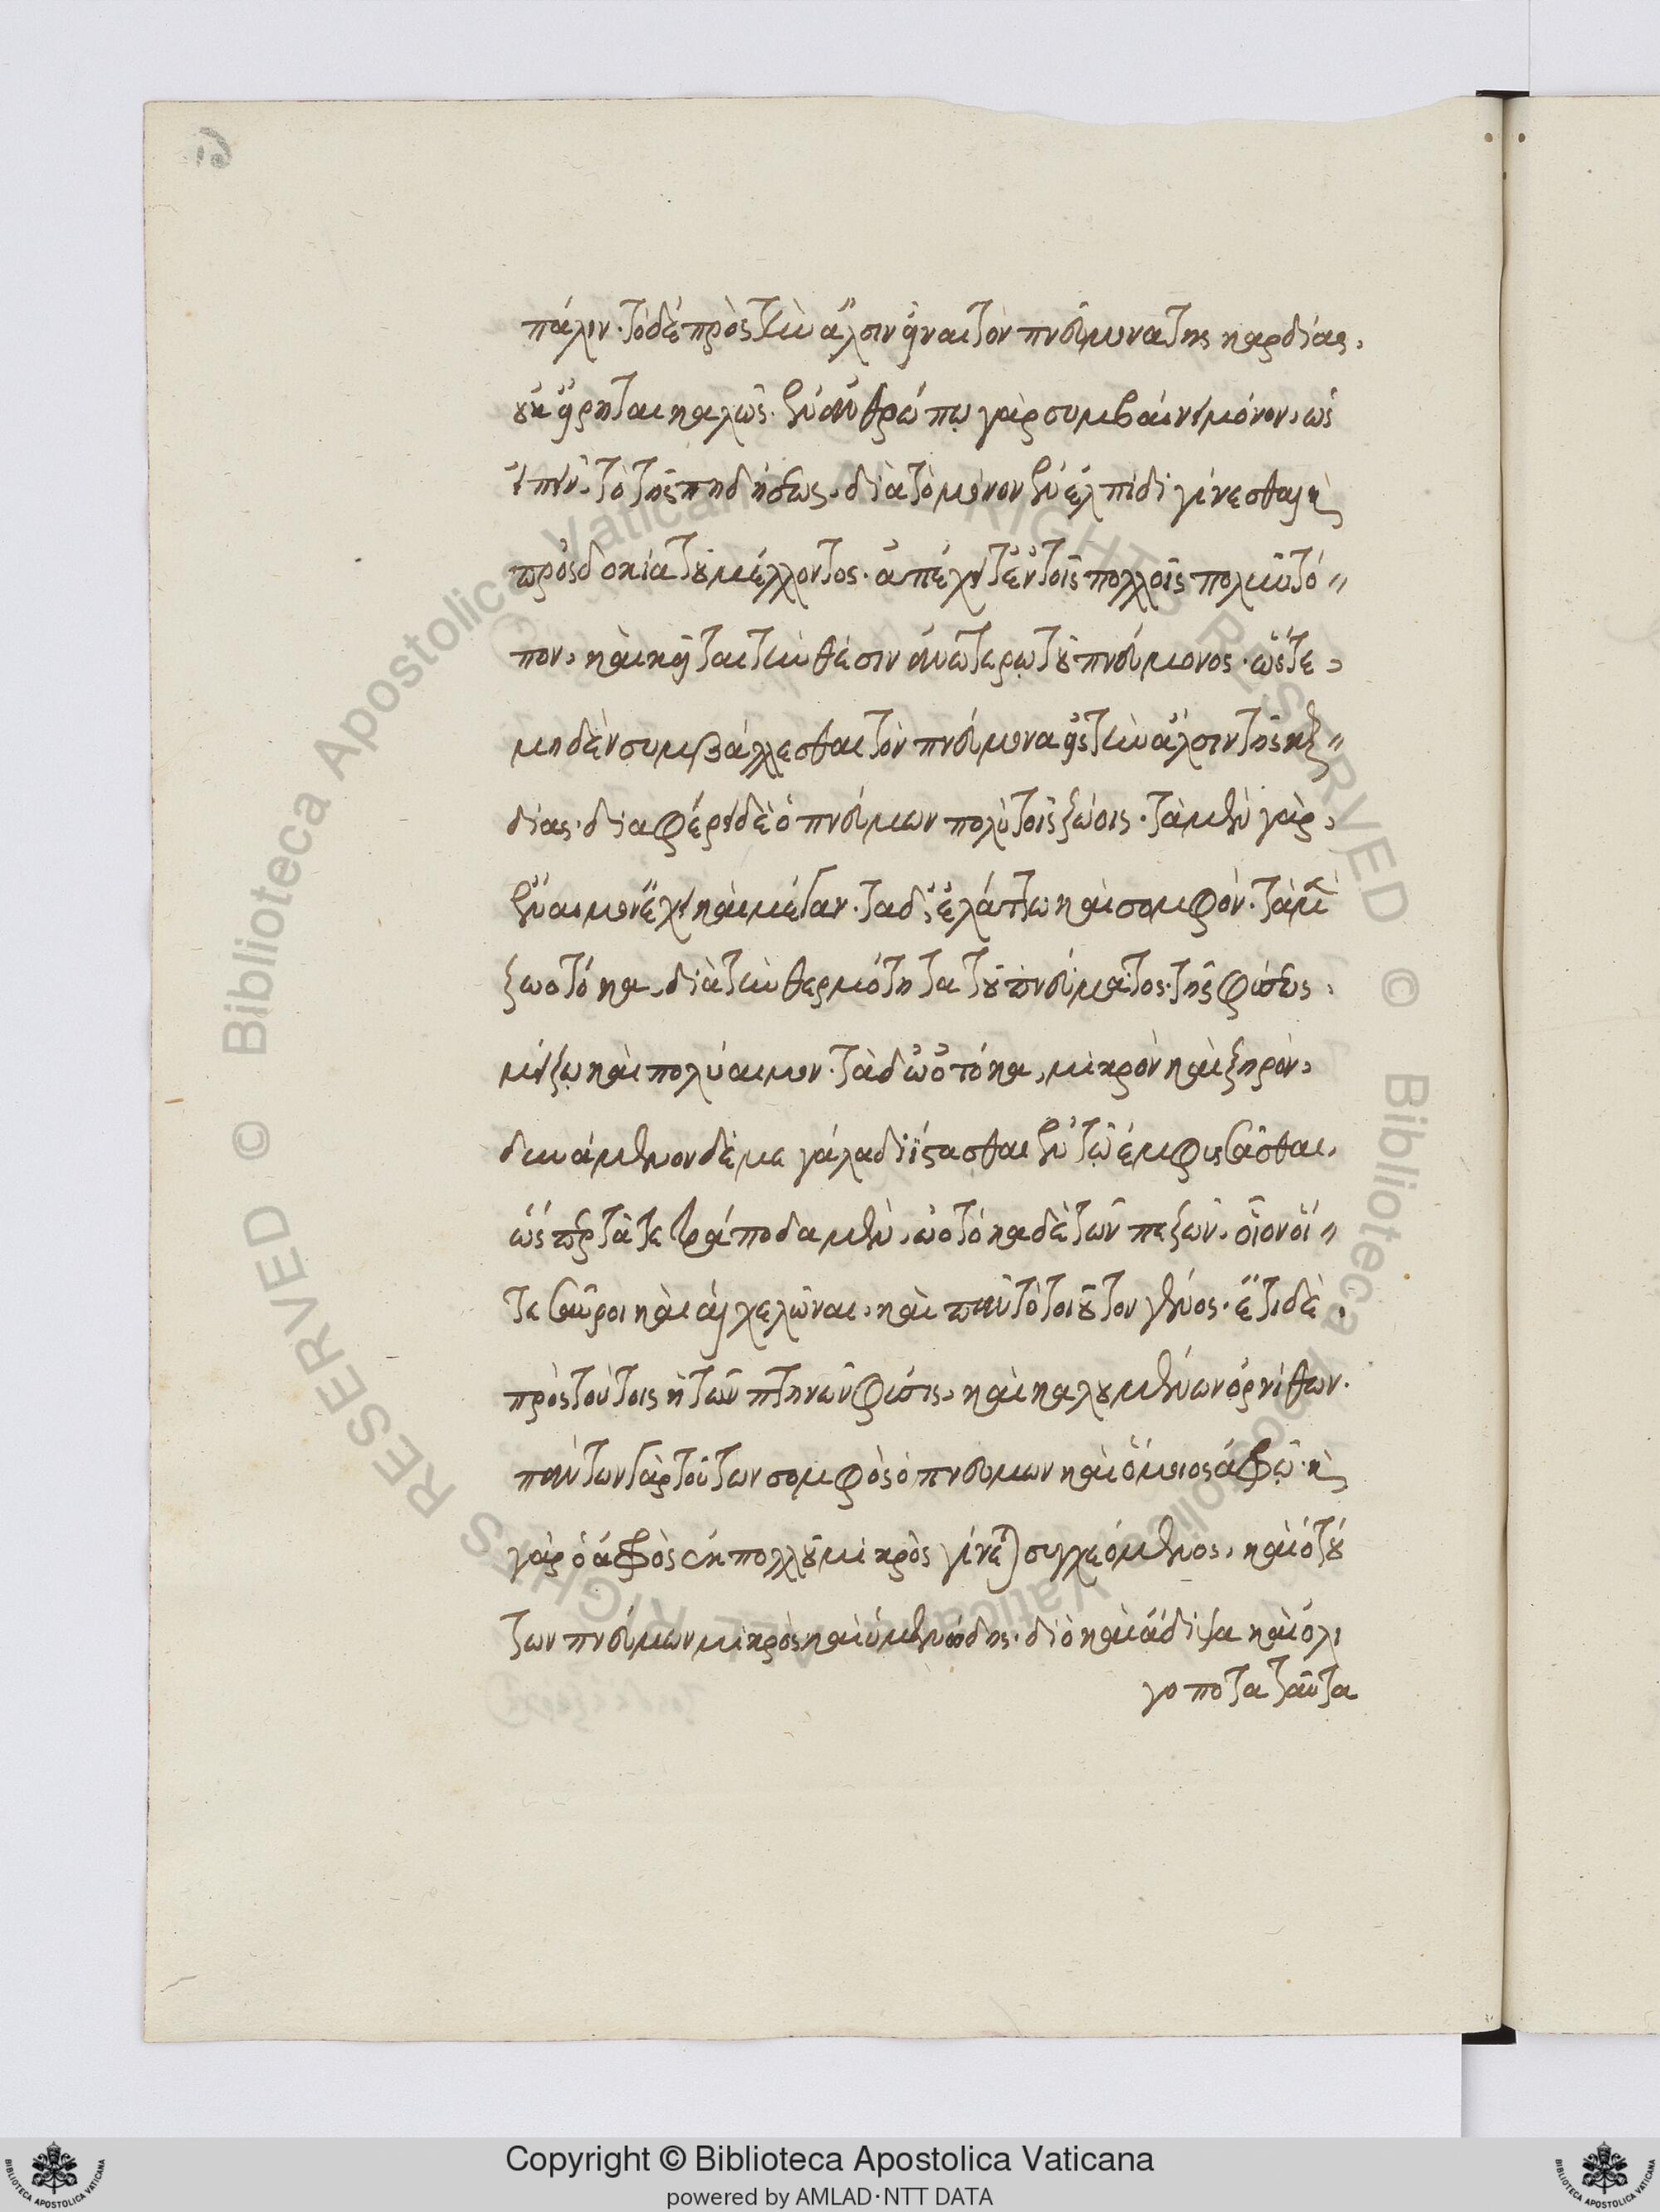 πάλιν. τὸ δὲ πρὸς τὴν ἅλσιν εἶναι τὸν πνεύμονα της καρδίας,
οὐκ εἴρηται καλῶς. ἐν ἀνθρώπῳ γὰρ συμβαίνει μόνον, ὡς
εἰπεῖν, τὸ τῆς πηδήσεως, διὰ τὸ μόνον ἐν ἐλπίδι γίνεσθαι καὶ
προσδοκία τοῦ μέλλοντος. ἀπέχει τ' ἐν τοῖς πολλοῖς πολὺν τό〃
πον, καὶ κεῖται τὴν θέσιν ἀνωτέρω τοῦ πνεύμονος. ὥστε,
μηδὲν συμβάλλεσθαι τὸν πνεύμονα εἰς τὴν ἅλσιν τῆς καρ〃
δίας. διαφέρει δὲ ὁ πνεύμων πολὺ τοῖς ζώοις. τὰ μὲν γὰρ,
ἔναιμον ἔχει καὶ μέγαν. τὰ δ' ἐλάττω καὶ σομφόν. τὰ μὲν
ζωοτόκα, διὰ τὴν θερμότητα τοῦ πνεύματος τῆς φύσεως,
μείζω καὶ πολύαιμον. τὰ δ' ὠοτόκα, μικρὸν καὶ ξηρὸν,
δυνάμενον δὲ μεγάλα διίστασθαι ἐν τῷ ἐμφυσᾶσθαι.
ὥσπερ τὰ τετράποδα μὲν, ὠοτόκα δὲ τῶν πεζῶν. οἷον οἵ〃
τε σαῦροι καὶ αἱ χελῶναι, καὶ πᾶν τὸ τοιοῦτον γένος. ἔτι δὲ,
πρὸς τούτοις ἡ τῶν πτηνῶν φύσις, καὶ καλουμένων ὀρνίθων.
πάντων γὰρ τούτων σομφὸς ὁ πνεύμων καὶ ὅμοιος ἀφρῷ. καὶ
γὰρ ὁ ἀφρὸς ἐκ πολλοῦ μικρὸς γίνεται συγχεόμενος, καὶ ὁ τού
των πνεύμων μικρὸς καὶ ὑμενώδης. διὸ καὶ ἄδιψα καὶ ὀλι
γοποτα ταῦτα
Copyright © Biblioteca Apostolica Vaticana
powered by AMLAD·NTT DATA